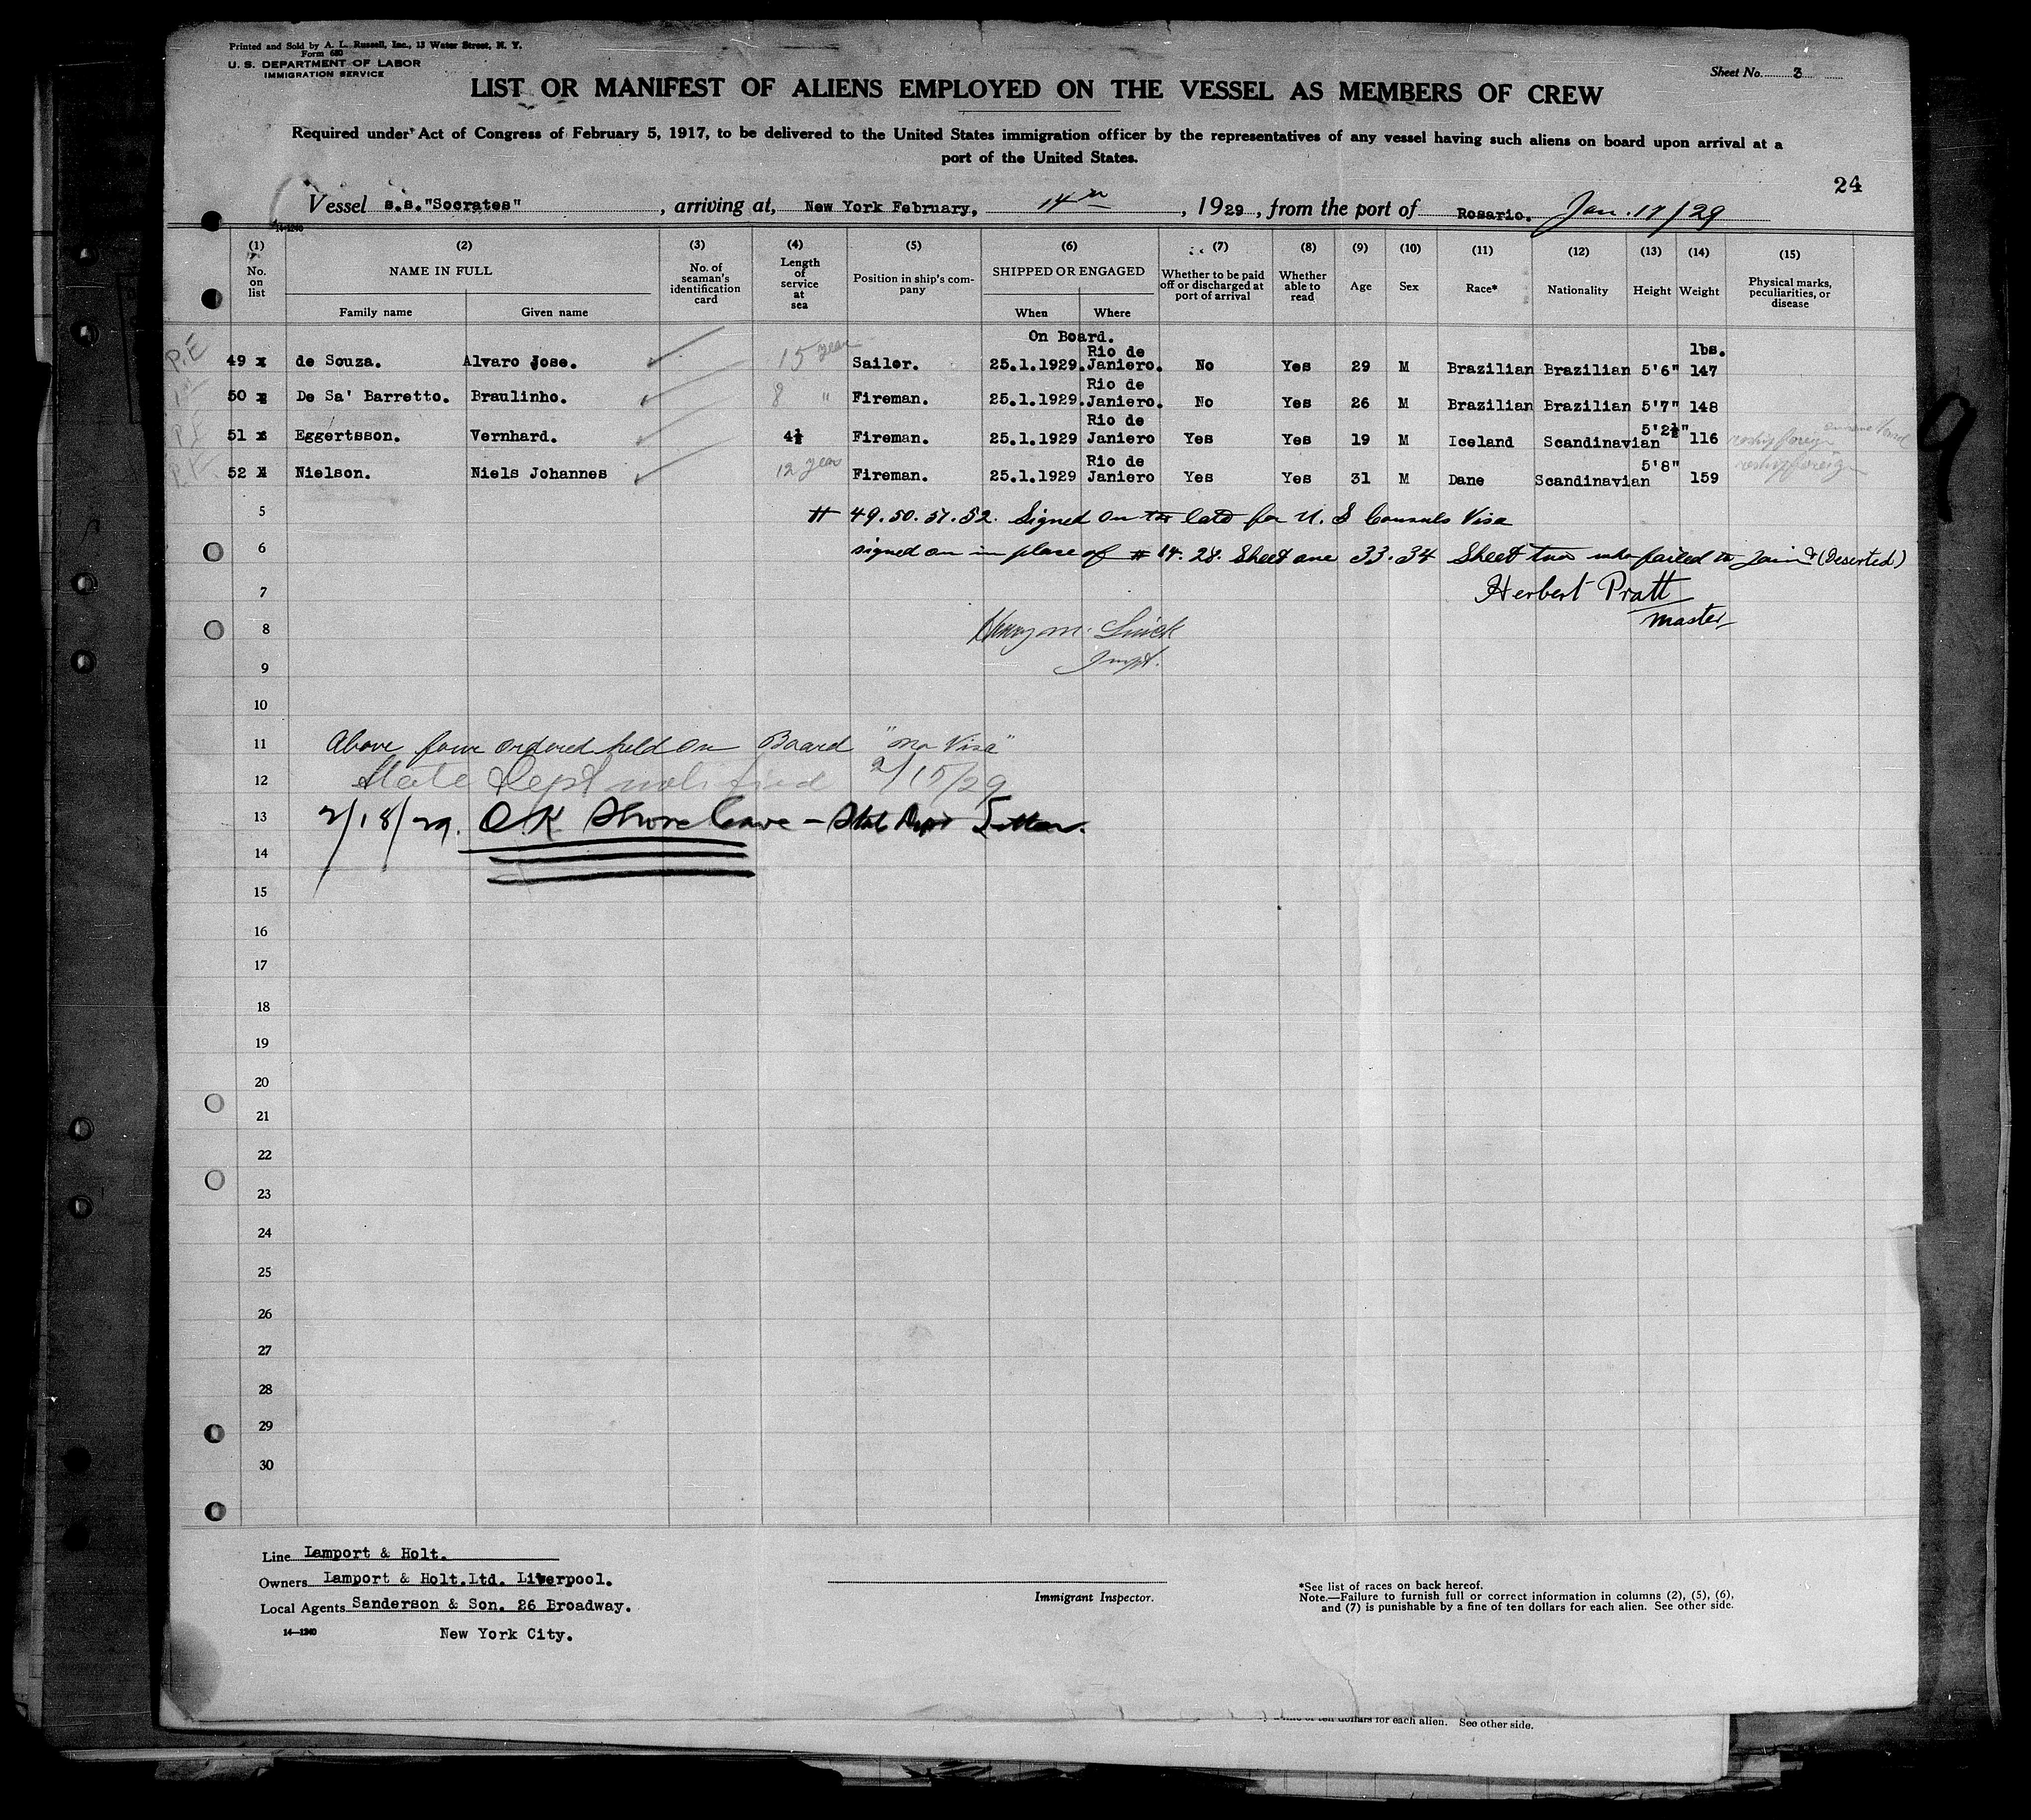 Printed and Sold by A. L. Russell, Inc., 13 Water Street, N. Y.
Form 680
U. S. DEPARTMENT OF LABOR
IMMIGRATION SERVICE
Sheet No. 3
LIST OR MANIFEST OF ALIENS EMPLOYED ON THE VESSEL AS MEMBERS OF CREW
Required under Act of Congress of February 5, 1917, to be delivered to the United States immigration officer by the representatives of any vessel having such aliens on board upon arrival at a
port of the United States.
24
Vessel s.s."Socrates", arriving at, New York February, 14th, 1929, from the port of Rosario. Jan. 17/29
14-1240
(1) (2) (3) (4) (5) (6) (7) (8) (9) (10) (11) (12) (13) (14) (15)
No. on list
NAME IN FULL
Family name
Given name
No. of seaman's identification card
Length of service at sea
Position in ship's company
SHIPPED OR ENGAGED
When
Where
Whether to be paid off or discharged at port of arrival
Whether able to read
Age
Sex
Race*
Nationality
Height
Weight
Physical marks, peculiarities, or disease
On Board.
lbs.
P.E 49 x de Souza. Alvaro Jose. 15 year Sailor. 25.1.1929. Rio de Janiero. No Yes 29 M Brazilian Brazilian 5'6" 147
50 x De Sa' Barretto. Braulinho. 8 " Fireman. 25.1.1929. Rio de Janiero. No Yes 26 M Brazilian Brazilian 5'7" 148
P.E 51 x Eggertsson. Vernhard. 4½ Fireman. 25.1.1929 Rio de Janiero Yes Yes 19 M Iceland Scandinavian 5'2½" 116 reship foreign
P.E 52 x Nielson. Niels Johannes 12 year Fireman. 25.1.1929 Rio de Janiero Yes Yes 31 M Dane Scandinavian 5'8" 159 reship foreign
5 # 49.50.51.52. Signed on too late for U. S Consuls Visa
6 signed on in place of # 14. 28. Sheet one 33.34 Sheet two who failed to Join & (Deserted)
7 Herbert Pratt
Master
8
Inspt.
9
10
11 Above four ordered held on Board "no Visa"
12 State Dept notified 2/15/29
13 2/18/29. O.K. Shore leave - State Dept Letter.
14
15
16
17
18
19
20
21
22
23
24
25
26
27
28
29
30
9
Line Lamport & Holt.
Owners Lamport & Holt.Ltd. Liverpool.
Local Agents Sanderson & Son. 26 Broadway.
14-1240
New York City.
Immigrant Inspector.
*See list of races on back hereof.
Note.—Failure to furnish full or correct information in columns (2), (5), (6),
and (7) is punishable by a fine of ten dollars for each alien. See other side.
of ten dollars for each alien. See other side.